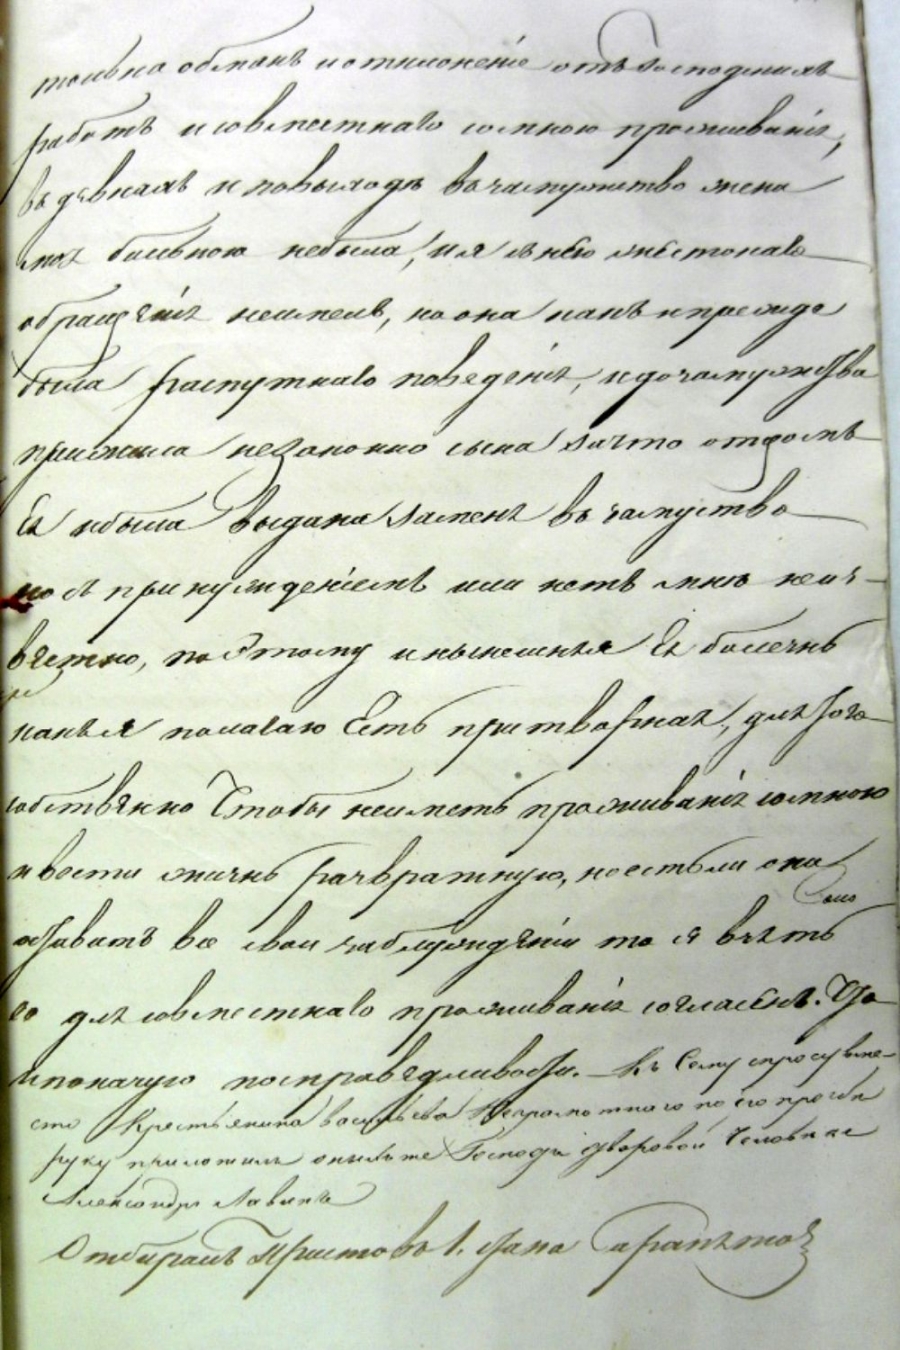 только обманъ и отклоненіе отъ господскихъ
работъ и совместнаго сомною проживанія,
въ девкахъ и повыходе взамужство жена
моя больною небыла, и я с нею жестокаго
обращенія неимелъ, но она какъ и прежде
была распутнаго поведенія, и дозамужства
прижила незаконно сына зачто отдомъ
Ея ибыла выдана заменя въ замуство
но съ принужденіемъ или нетъ мне неиз-
вестно, поэтому и нынешняя Ея болезнь
какъ я полагаю Есть притворная, для того
собственно Чтобы неиметь проживанія сомною
и вести жизнь развратную, но естьли она
оставитъ все свои заблужденіи то я взять
ео для совместнаго проживанія согласенъ. Что
и показую посправедливости. Къ Сему спросу вме-
сто Крестьянина Васильева Неграмотнаго по его прозбе
руку приложилъ оныхъ же Господъ дворовой Человекъ
Александръ
Отбиралъ Приставъ 1. Стана